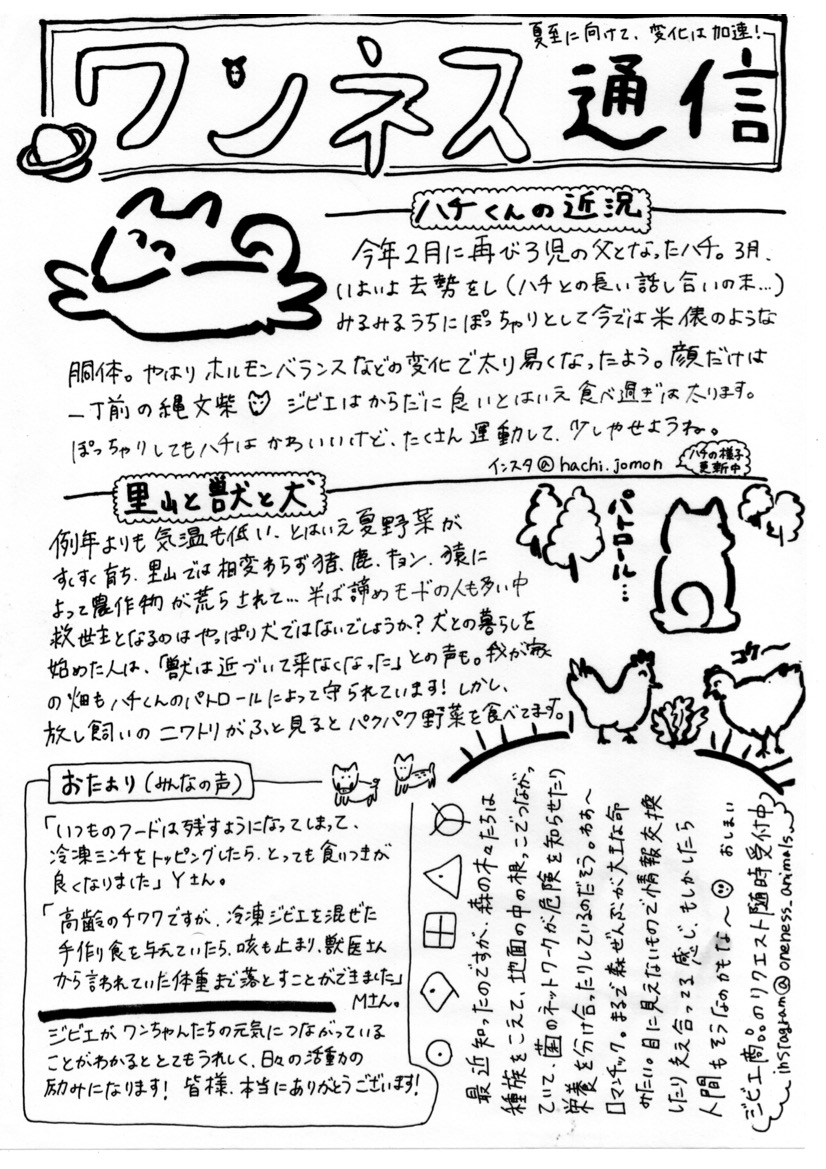 夏至に向けて、変化は加速!
ワンネス通信
ハチくんの近況
今年2月に再び3児の父となったハチ。3月、
いよいよ去勢をし(ハチとの長い話し合いの末...)
みるみるうちにぽっちゃりとして今では米俵のような
胴体。やはりホルモンバランスなどの変化で太り易くなったよう。顔だけは
一丁前の縄文柴 ジビエはからだに良いとはいえ食べ過ぎは太ります。
ぽっちゃりしてもハチはかわいいけど、たくさん運動して、少しやせようね。
インスタ@hachi.jomon
ハチの様子
更新中
里山と獣と犬
例年よりも気温も低い、とはいえ夏野菜が
すくすく育ち、里山では相変わらず猪、鹿、キョン、猿に
よって農作物が荒らされて...半ば諦めモードの人も多い中
救世主となるのはやっぱり犬ではないでしょうか?犬との暮らしを
始めた人は、「獣は近づいて来なくなった」との声も。我が家
の畑もハチくんのパトロールによって守られています!しかし、
放し飼いのニワトリがふと見るとパクパク野菜を食べてます。
パトロール...
コケー
おたより(みんなの声)
「いつものフードは残すようになってしまって、
冷凍ミンチをトッピングしたら、とっても食いつきが
良くなりました」Yさん。
「高齢のチワワですが、冷凍ジビエを混ぜた
手作り食を与えていたら、咳も止まり、獣医さん
から言われていた体重まで落とすことができました」
Mさん。
ジビエがワンちゃんたちの元気につながっている
ことがわかるととてもうれしく、日々の活動の
励みになります! 皆様、本当にありがとうございます!
最近知ったのですが、森の木々たちは
種族をこえて、地面の中の根っこでつながっ
ていて、菌のネットワークが危険を知らせたり
栄養を分け合ったりしているのだそう。わぁ〜
ロマンチック。まるで森ぜんぶが大きな命
みたい。目に見えないもので情報交換
したり支え合ってる感じ、もしかしたら
人間もそうなのかもな〜 おしまい
ジビエ商品のリクエスト随時受付中
instagram@oneness_animals